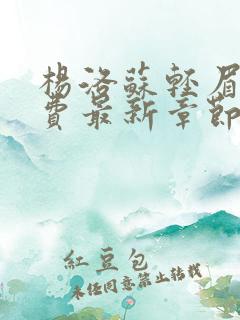 楊洛蘇輕眉
費最新章節
紅豆包
未經同意禁止轉載